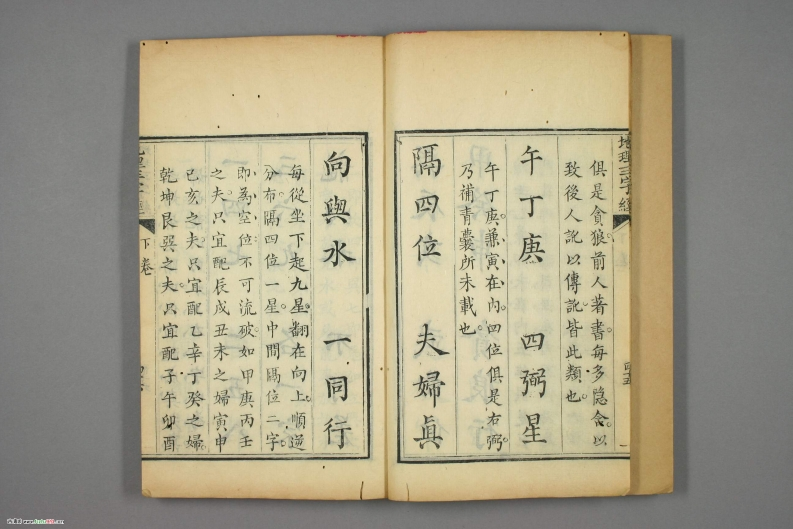 地理三字經
四五
俱是貪狼前人著書每多隱含以
致後人訛以傳訛皆此類也
午丁庚 四弼星
午丁庚兼寅在內四位俱是右弼
乃補青囊所未載也
隔四位 夫婦真
向與水 一同行
每從坐下起九星翻在向上順逆
分布隔四位一星中間隔位二字
即為空位不可流破如甲庚丙壬
之夫只宜配辰戌丑未之婦寅申
巳亥之夫只宜配乙辛丁癸之婦
乾坤艮巽之夫只宜配子午卯酉
下卷